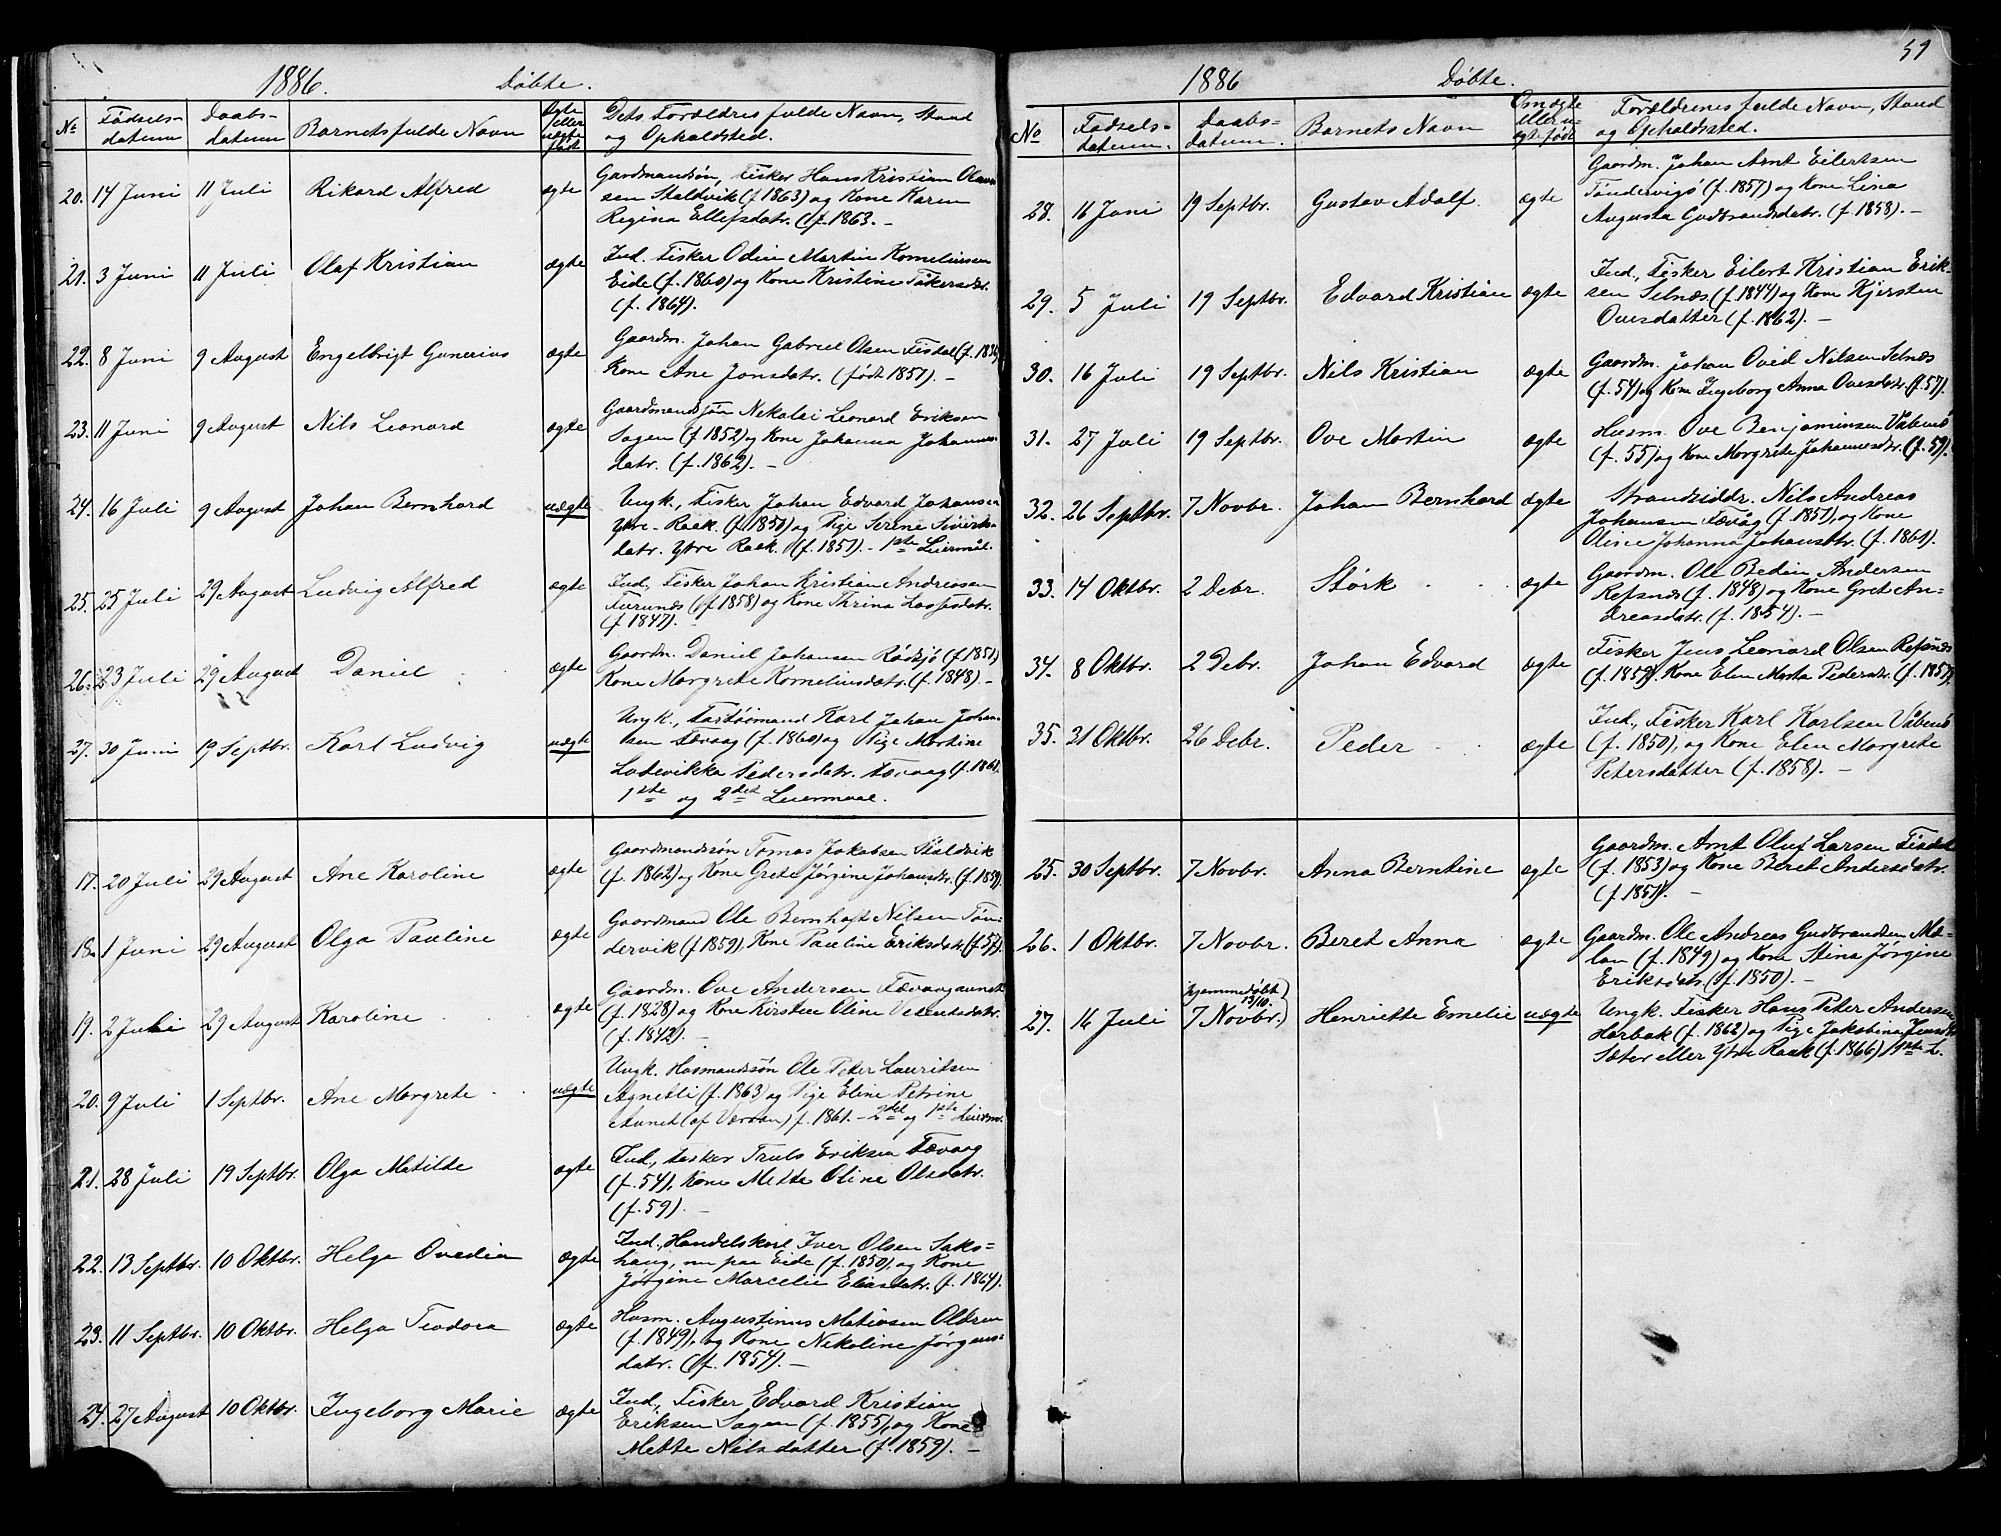 1886. Döbte.
No
Fødsels-
datum
Daabs-
datum
Barnets fulde Navn
Ægte
eller
uægte
født
Dets Forældres fulde Navn, Stand
og Opholdsted.
20. 14 Juni 11 Juli Rikard Alfred ægte
Gardmandsøn, Fisker Hans Kristian Olaus
sen Staldvik (f 1863) og Kone Karen
Regina Ellefsdatr. (f. 1863. -
21. 3 Juni 11 Juli Olaf Kristian ægte
Ind. Fisker Odin Martin Korneliussen
Eide (f. 1860) og Kone Kristine
(f. 1864).
22. 8 Juni 9 August Engelbrigt Gunerius ægte
Gaardm. Johan Gabriel Olsen Fisdal
Kone Ane Jonsdatr. (født 1851). -
23. 11 Juni 9 August Nils Leonard ægte
Gaardmandssøn Nekolai Leonard Eriksen
Sagen (f. 1852) og Kone Johanna Johannes
datr. (f. 1862). -
24. 16 Juli 9 August Johan Bernhard uægte
Ungk., Fisker Johan Edvard Johansen
Ytre-Raak. (f. 1850) og Pige Serine Siverts
datr. Ytre Raak. (f. 1851). - 1ste Leiermål.
25. 25 Juli 29 August Ludvig Alfred ægte
Ind., Fisker Johan Kristian Andreassen
Furunes (f. 1858) og Kone Thrina Lassesdatr.
(f. 1847).
26. 23 Juli 29 August Daniel ægte
Gaardm. Daniel Johansen Rödsjö (f 1851)
Kone Margrete Korneliusdatr. (f. 1848). -
27. 30 Juni 19 Septbr. Karl Ludvig uægte
Ungk., Karl Johan Johan-
sen Fævaag (f. 1860) og Pige Martine
Lodevikka Pedersdatr. Fævaag (f. 1861.
1ste og 2det Leiermaal.
17. 20 Juli 29 August Ane Karoline ægte
Gaardmandssön Tomas Jakobsen Staldvik
(f. 1862) og Kone Grete Jørgine Johansdr. (f. 1859).
18. 1 Juni 29 August Olga Pauline ægte
Gaardmand Ole Bernhoft Nilsen Tön-
dervik (f. 1859), Kone Pauline Eriksdatr. (f. 57).
19. 2 Juli 29 August Karoline ægte
Gaardm. Ove Andersen Fævaagaunet
(f. 1828) og Kone Kirstine Oline
(f. 1842). -
20. 9 Juli 1 Septbr. Ane Margrete uægte
Ungk. Husmandssøn Ole Peter Lauritsen
Agnetli (f. 1863) og Pige Eline Petrine
Aunet (af Værran) f. 1861. - 2det og 1ste Leierm.
21. 28 Juli 19 Septbr. Olga Matilde ægte
Ind., Fisker Truls Eriksen Fævaag
(f. 54), Kone Mette Oline Olsdatr.
(f. 59). -
22. 13 Septbr. 10 Oktbr. Helga Ovedia ægte
Ind., Handelskarl Iver Olsen Saks=
haug, nu paa Eide (f. 1850), og Kone
Jørgine Marcelie Eliasdatr. (f. 1864).
23. 11 Septbr. 10 Oktbr. Helga Teodora ægte
Husm. Augustinus Matiasen Oldren
(f. 1849), og Kone Nekoline Jørgens-
datr. (f. 1854). -
24. 27 August 10 Oktbr. Ingeborg Marie ægte
Ind., Fisker Edvard Kristian
Eriksen Sagen (f. 1855), og Kone
Mette Nilsdatter (f. 1859). -
59
1886 Döbte.
No
Fødsels-
datum.
Daabs-
datum.
Barnets Navn
Om ægte
eller u-
ægte født
Forældrenes fulde Navn, Stand
og Opholdssted.
28. 16 Juni 19 Septbr. Gustav Adolf. ægte
Gaardm. Johan Arnt Eilertsen
Töndervigö (f. 1857) og Kone Lina
Augusta Gudbrandsdatr. (f. 1858). -
29. 5 Juli 19 Septbr. Edvard Kristian ægte
Ind., Fisker Eilert Kristian Erik-
sen, Selnæs (f. 1844) og Kone Kjersten
Ovesdatter (f. 1862). -
30. 16 Juli 19 Septbr. Nils Kristian ægte
Gaardm. Johan Ovid Nilsen Selnæs
(f. 54) og Kone Ingeborg Anna Ovesdatr. (f. 57).
31. 27 Juli 19 Septbr. Ove Martin ægte
Husm. Ove Benjaminsen Våbensö
(f. 55) og Kone Margrete Johannesdr. (f. 59).
32. 26 Septbr. 7 Novbr. Johan Bernhard ægte
Strandsiddr. Nils Andreas
Johansen Fævåg (f. 1851), og Kone
Olise Johanna Johansdtr. (f. 1861).
33. 14 Oktbr. 2 Debr. Størk ægte
Gaardm. Ole Bedin Andersen
Refsnæs (f. 1848) og Kone Gret An-
dreasdatr. (f. 1854). -
34. 8 Oktbr. 2 Debr. Johan Edvard ægte
Fisker Jens Leonard Olsen Refsnæs
(f. 1859). Kone Elen Marta Pedersdr. (f. 1857).
35. 31 Oktbr. 26 Debr. Peder ægte
Ind., Fisker Karl Karlsen Våbensö
(f. 1850), og Kone Elen Margrete
Petersdatter (f. 1858). -
25. 30 Septbr. 7 Novbr. Anna Berntine ægte
Gaardm. Arnt Oluf Larsen Fisdal
(f. 1853) og Kone Beret Andersdatr.
(f. 1851). -
26. 1 Oktbr. 7 Novbr. Beret Anna ægte
Gaardm. Ole Andreas Gudbrandsen Mæ-
lan (f. 1849) og Kone Stina Jørgine
Eriksdatr. (f. 1850). -
hjemmedöbt
13/10.
27. 16 Juli 7 Novbr.) Henriette Emelie uægte
Ungk. Fisker Hans Peter Andersen
Harbak (f. 1862) og Pige Jakobina
Sæter eller Ytre Raak (f. 1866) 1ste L.